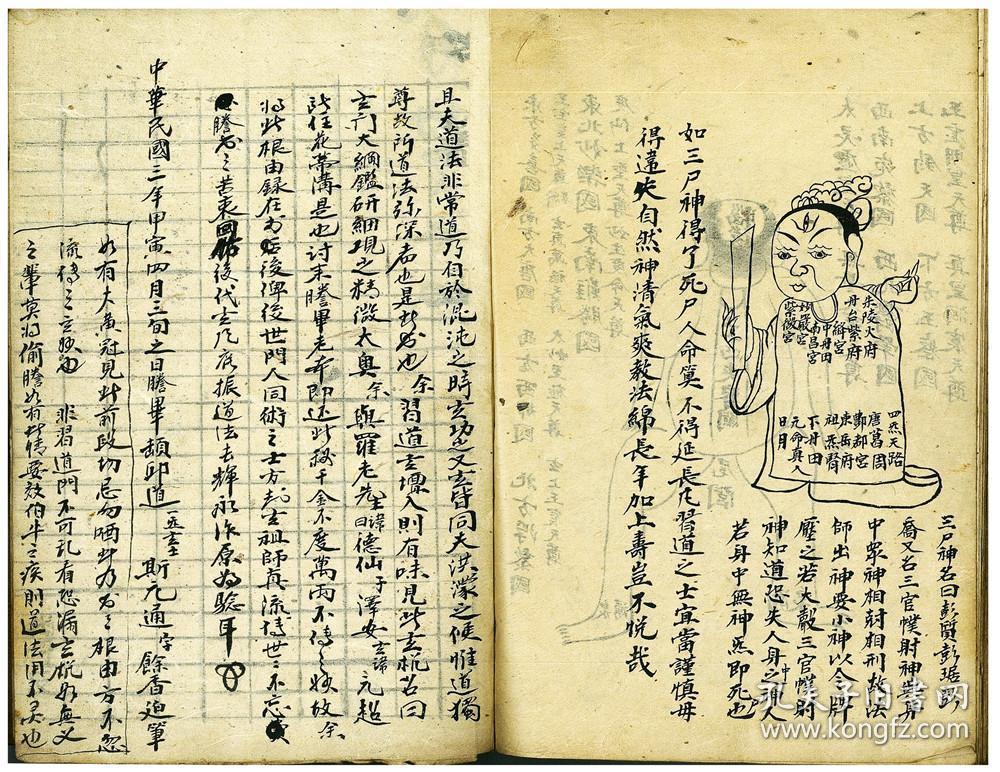 朱陵火府
丹台紫府
絳宮
中丹田
南昌宮
紫微宮
四炁天路
唐葛周
酆都宮
東岳府
祖炁腎
下丹田
元命真人
日月
三尸神名曰彭質彭琚彭
喬又名三官幞射神
中眾神相討相刑故法
師出神要小神以令牌
壓之若大殼三官幞射
神知道恐失人身之中神人
若身中無神炁即死也
如三尸神得了死尸人命算不得延長凡習道之士宜當謹慎毋
得違失自然神清氣爽教法綿長年加上壽豈不悅哉
且夫道法非常道乃自於混沌之時玄功之又玄皆同夫洪濛之候惟道獨
尊故所道法弥深者也是故也余習道玄壇人則有味見此玄机名曰
玄門大綱鑑研細現之精微太奥余與羅老先諱曰德仙子澤安玄諱元超
住花帶溝是也討來謄畢老弃即还此 千金不度萬両不傳 故余
將此根由録在 後俾後世門人同術之士方 玄祖師真流傳世之不忘
謄 之苦来 後代玄凡 振道法玄輝永作原為驗耳
中華民國三年甲寅四月三旬之日謄畢 頡印道 斯九通字餘香廸筆
如有大黄冠見此前段切忌勿哂此乃 之根由方不忽
流傳之玄 非習道門不可乱有恐漏玄机如無义
之輩莫 偷謄如有此情要效伯牛之疾則道法用不灵也
孔夫子旧书网
www.kongfz.com